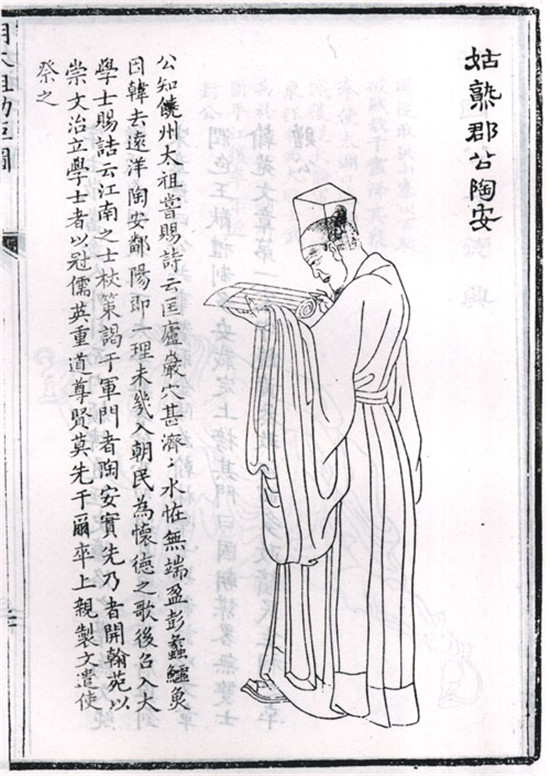 姑熟郡公陶安
公知饒州太祖嘗賜詩云匡廬巖穴甚濟〻水恠無端盈彭蠡鱷魚
因韓去遠洋陶安鄱陽即大理未幾入朝民為懷德之歌後召入大
學士賜誥云江南之士杖策謁于軍門者陶安實先乃者開翰苑以
崇文治立學士者以冠儒英重道尊賢莫先于爾卒上親製文遣使
祭之
明太祖功臣圖